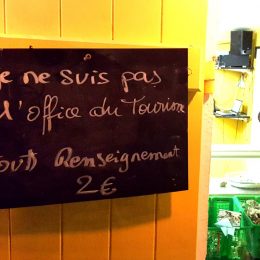 Je ne suis pas
l'office du Tourisme
Tout Renseignement
2€